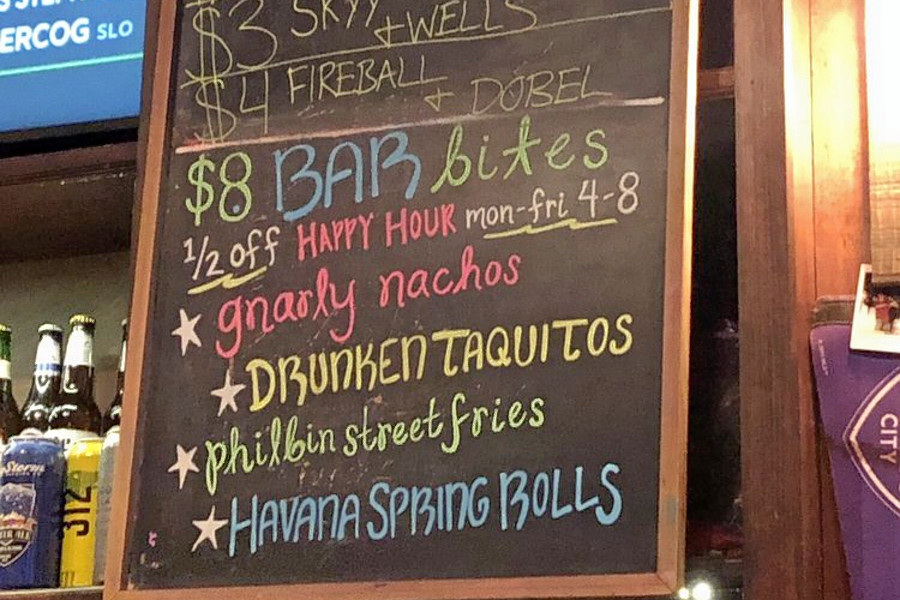 ERCOG SLO
$3 SKYY
& WELLS
$4 FIREBALL
& DOBEL
$8 BAR bites
1/2 off HAPPY HOUR mon-fri 4-8
gnarly nachos
DRUNKEN TAQUITOS
philbin street fries
HAVANA SPRING ROLLS
Storm
312
CITY